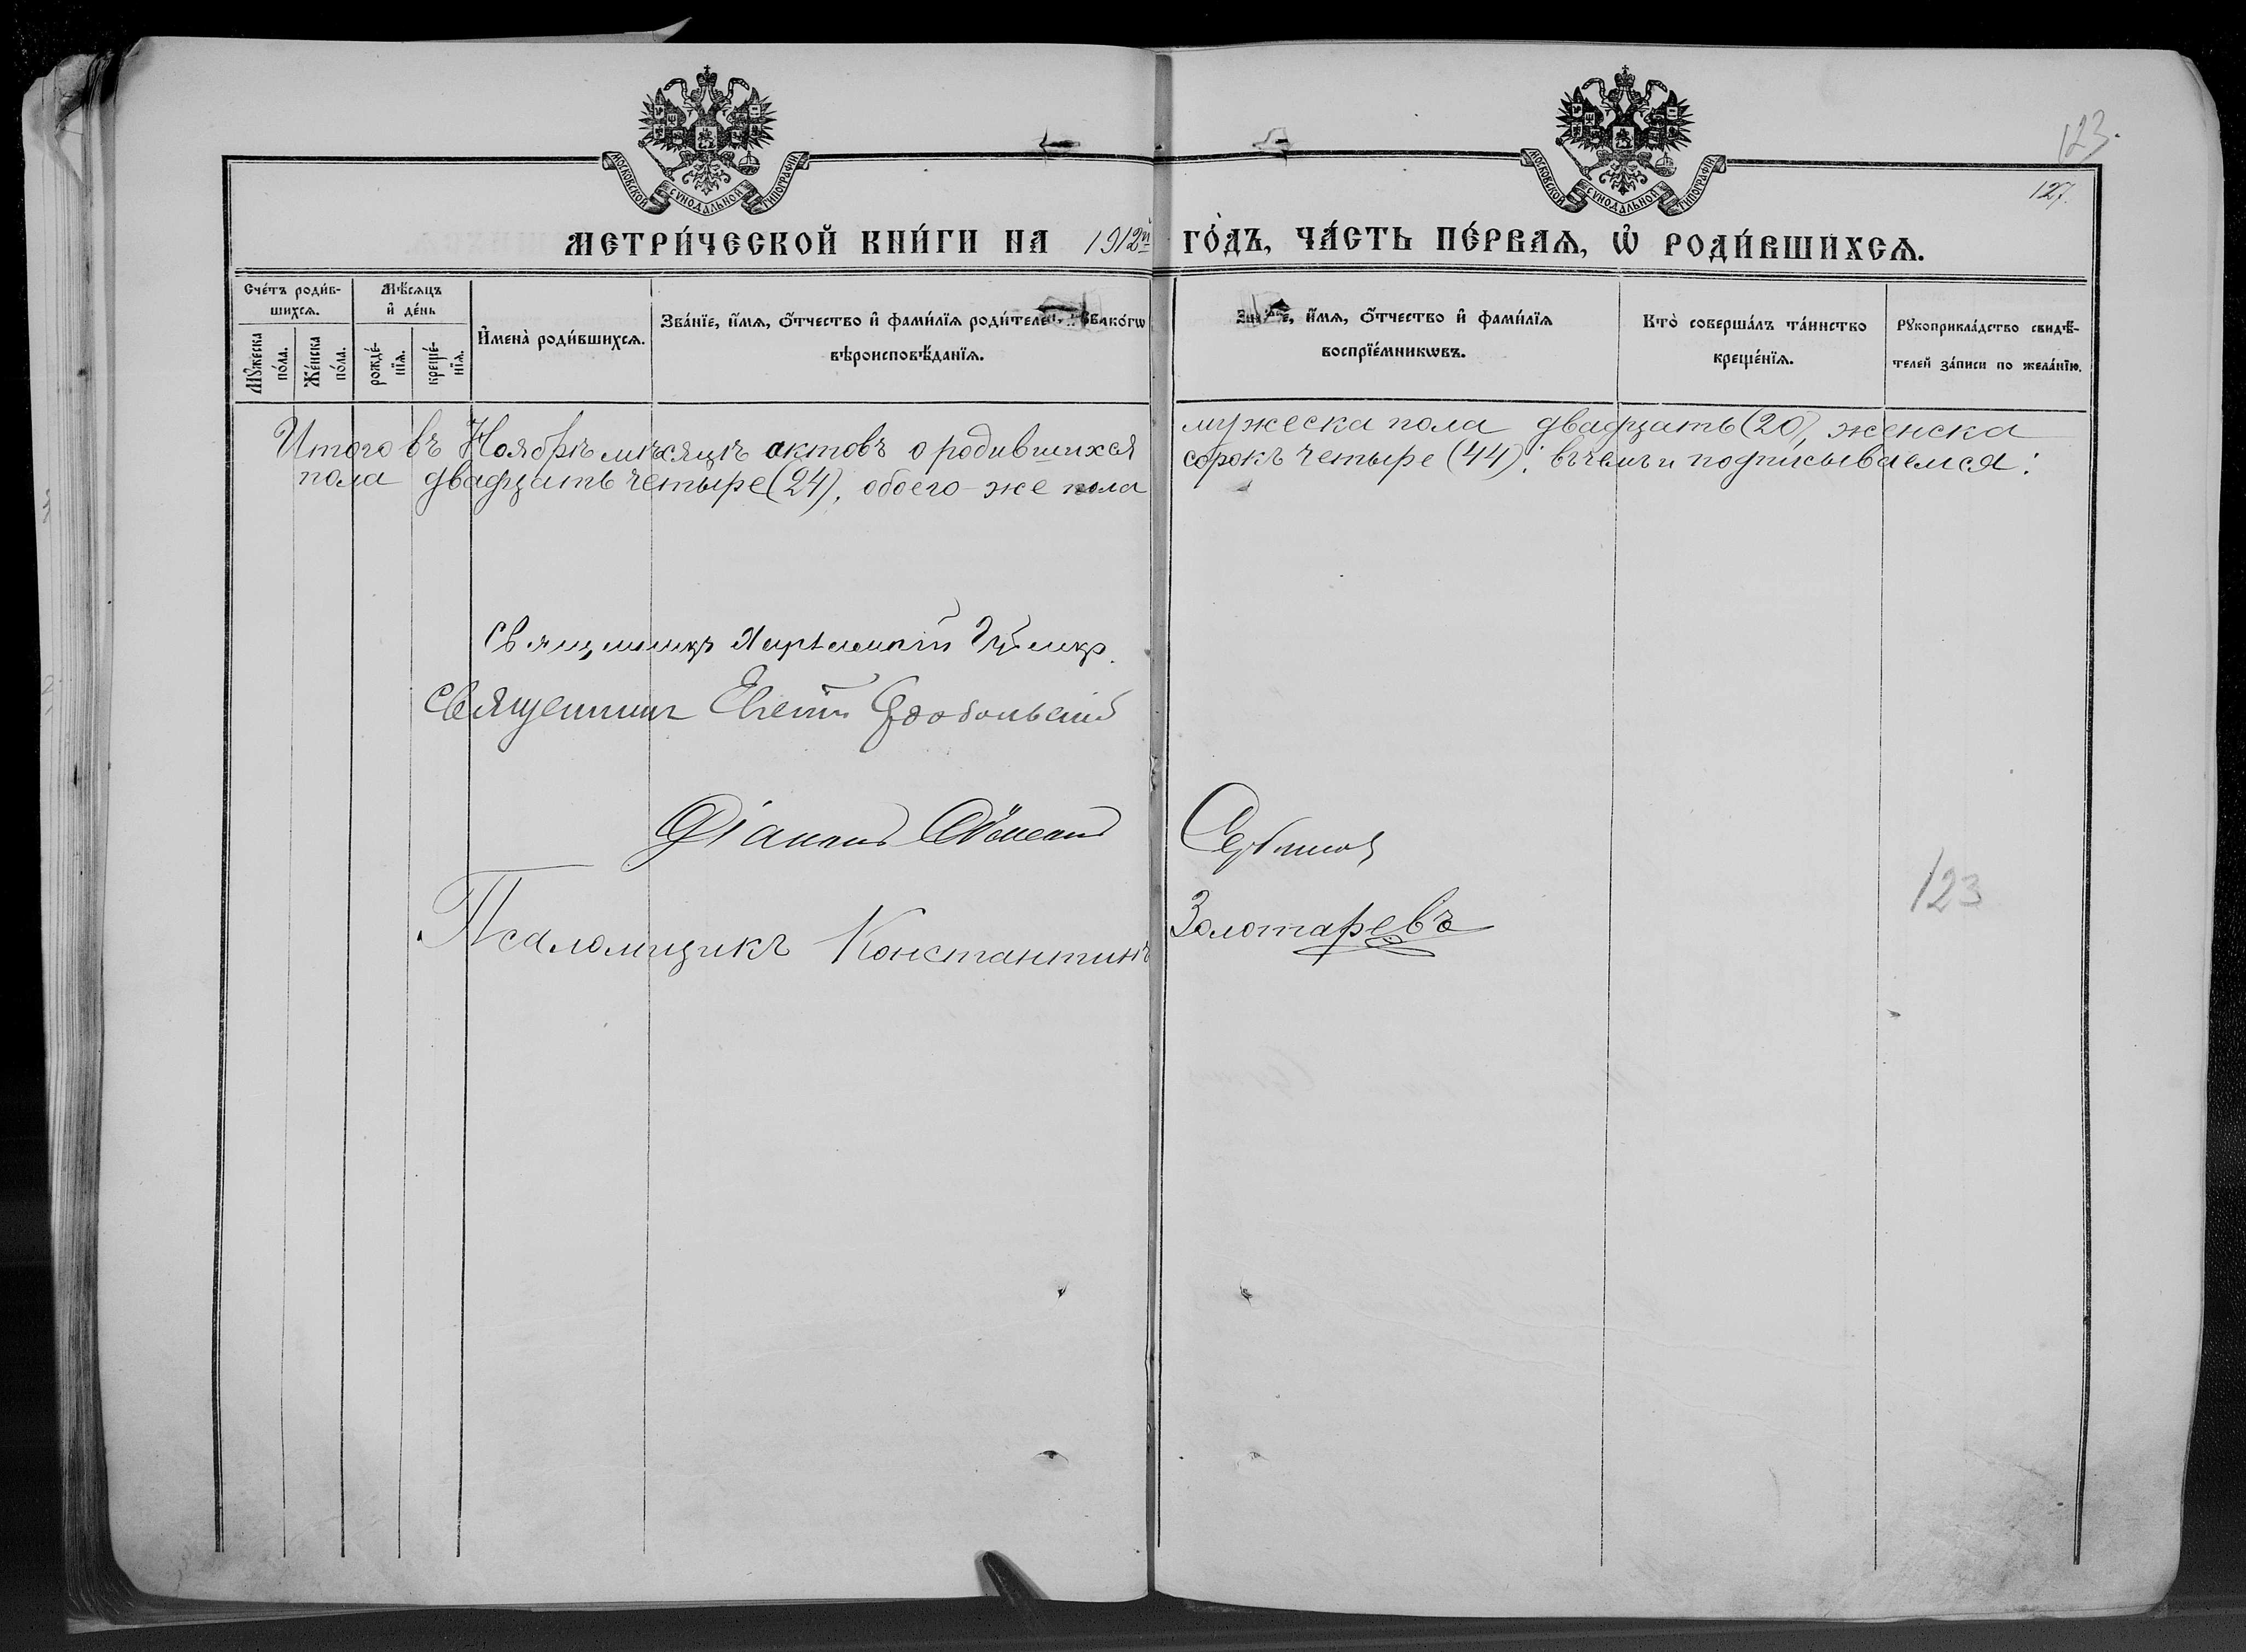 МОСКОВСКОЙ СѴНОДАЛЬНОЙ ТИПОГРАФІИ
МОСКОВСКОЙ СѴНОДАЛЬНОЙ ТИПОГРАФІИ
123.
127.
МЕТРИ́ЧЕСКОЙ КНИ́ГИ НА 1912й ГО́ДЪ, ЧА́СТЬ ПЕ́РВАѦ, Ѡ҆ РОДИ́ВШИХСѦ.
Сче́тъ роди́в-
шихсѧ.
Мꙋ́жеска
по́ла.
Же́нска
по́ла.
Мѣ́сѧцъ
и҆ де́нь
рожде́-
нїѧ.
креще́-
нїѧ.
И҆мена̀ роди́вшихсѧ.
Зва́нїе, и҆́мѧ, ѻ҆́тчество и҆ фами́лїѧ роди́телей, и҆ всѧко́гѡ
вѣроисповѣ́данїѧ.
Зва́нїе, и҆́мѧ, ѻ҆́тчество и҆ фами́лїѧ
воспрїе́мникѡвъ.
Кто̀ соверша́лъ та́инство
креще́нїѧ.
Рꙋкоприкла́дство свидѣ́-
телей за́писи по жела́нїю.
Итого въ Ноябрѣ мѣсяцѣ актовъ о родившихся мужеска пола двадцать (20), женска
пола двадцать четыре (24), обоего-же пола сорокъ четыре (44); въ чемъ и подписываемся:
Священникъ
Священникъ Евгеній
Діаконъ
Псаломщикъ Константинъ Золотаревъ
123